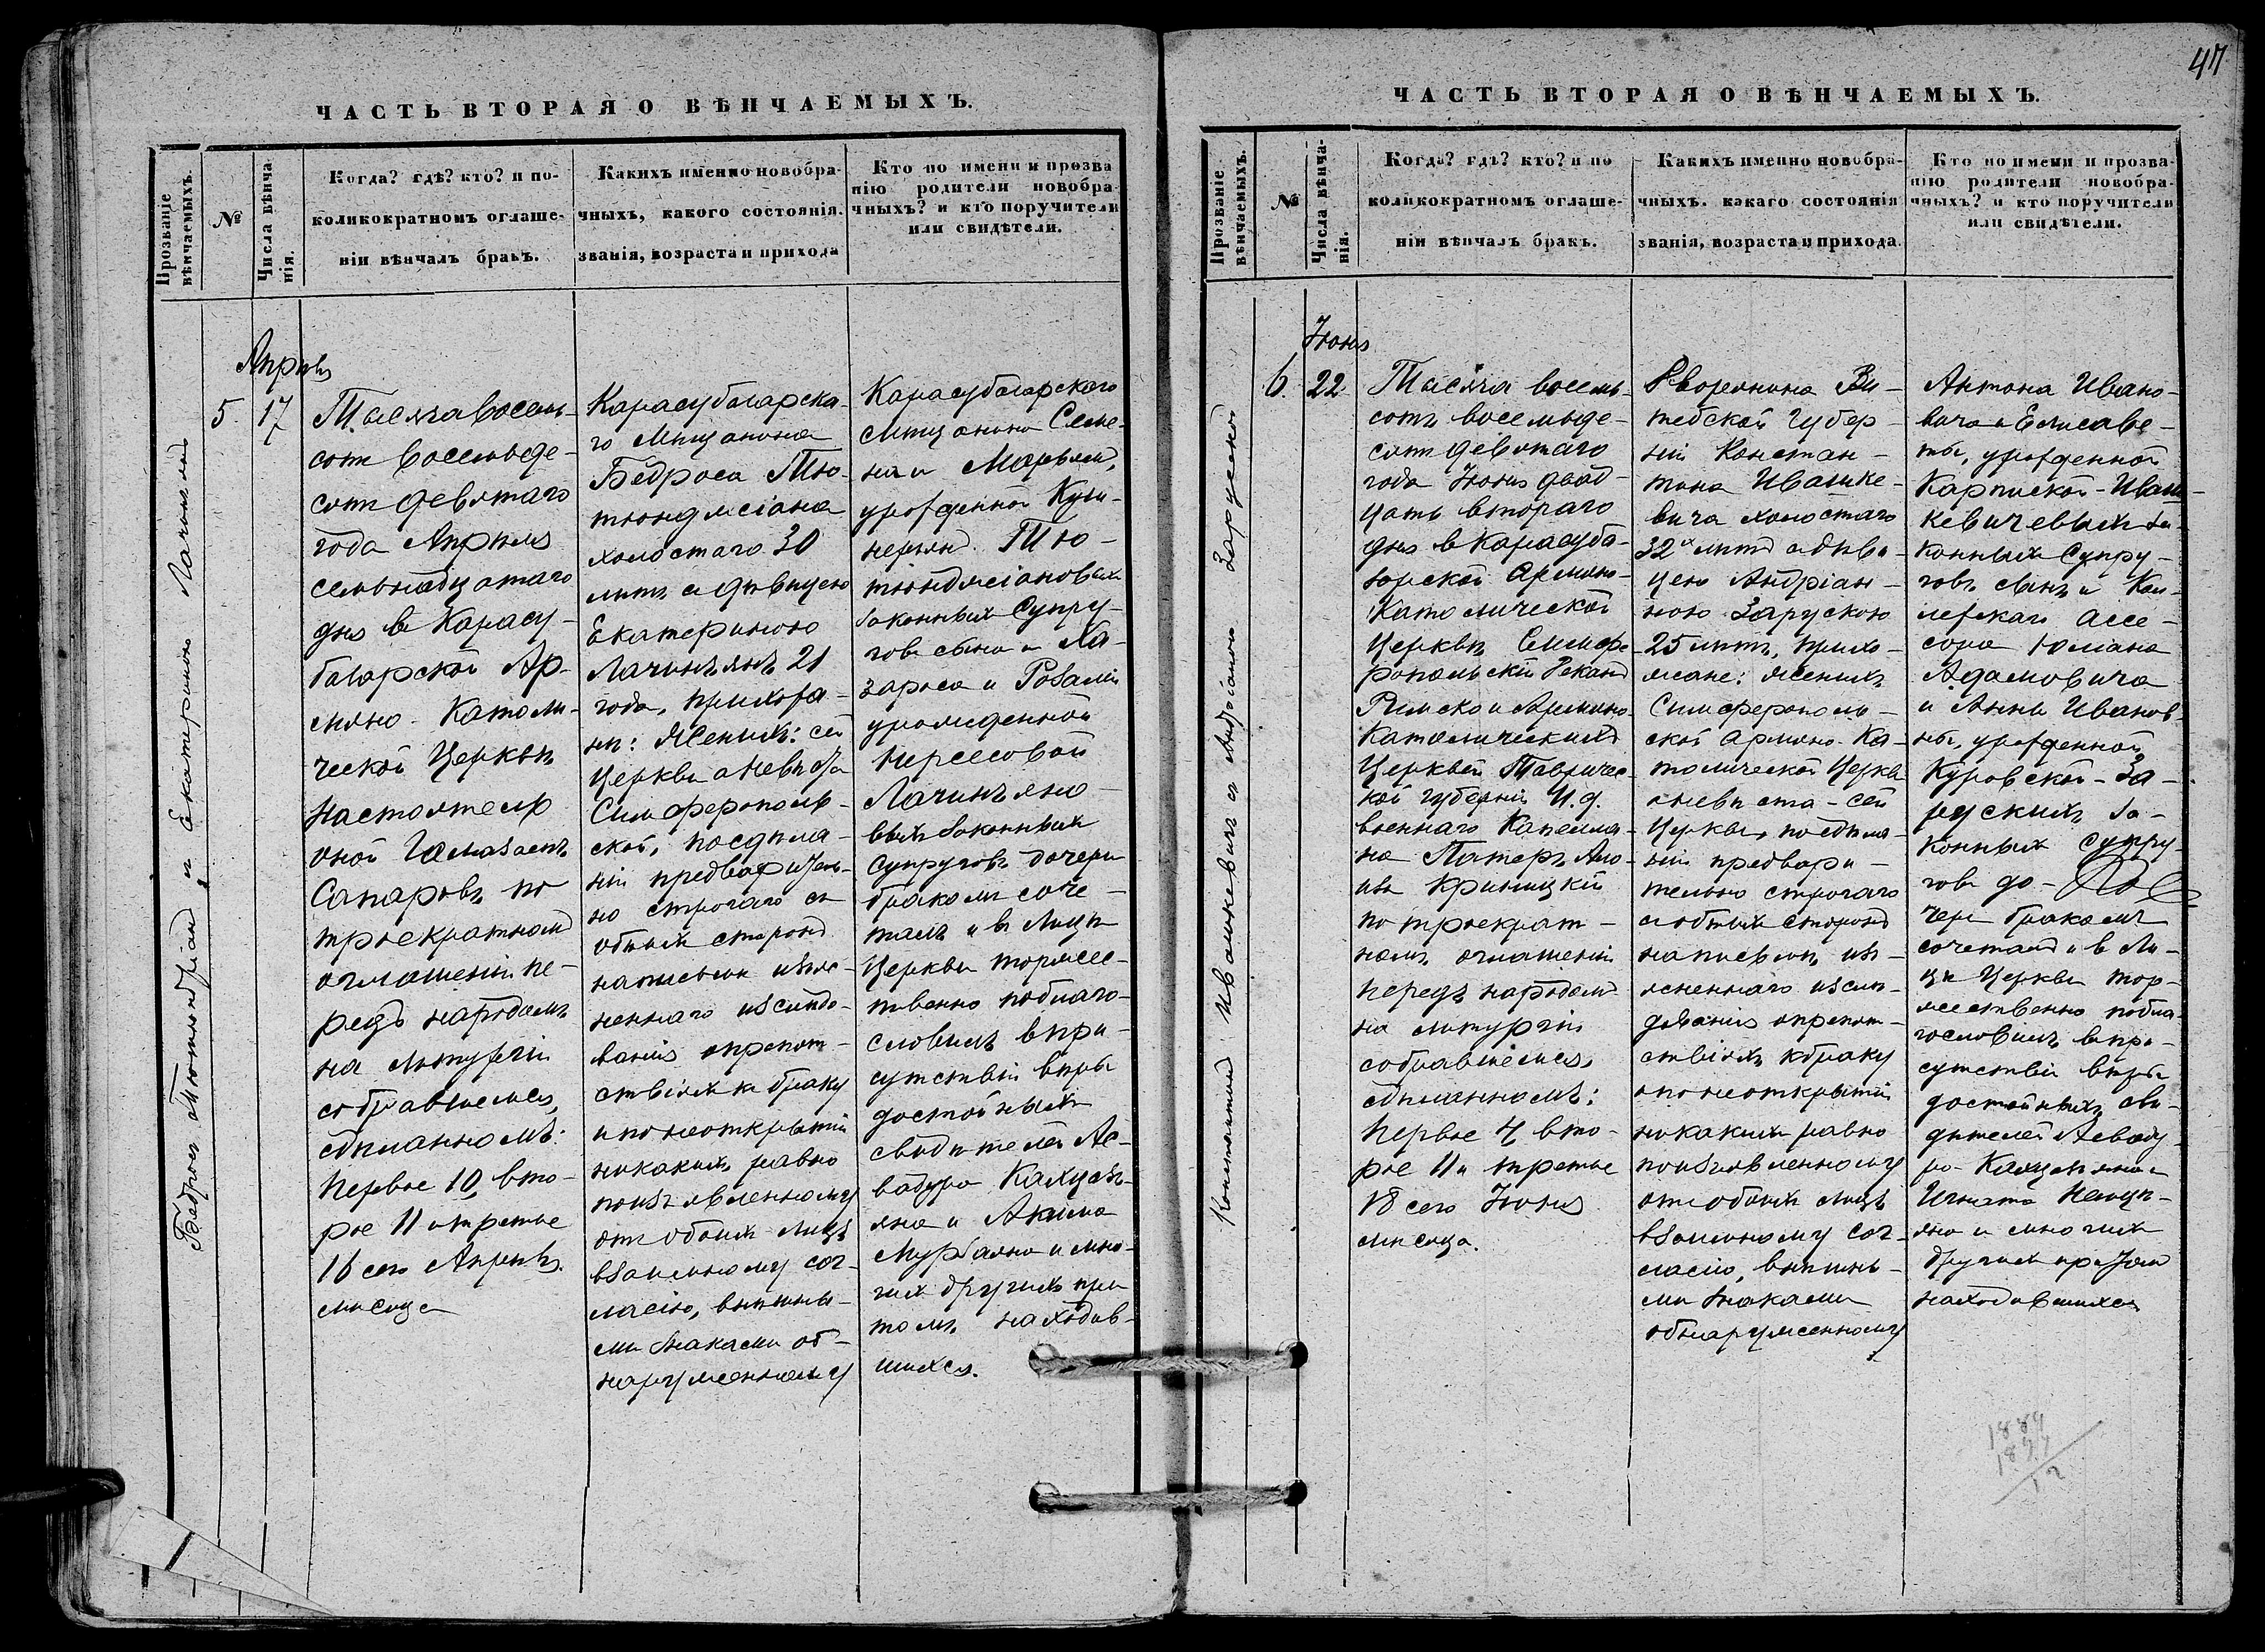 47
ЧАСТЬ ВТОРАЯ О ВѢНЧАЕМЫХЪ.
Прозваніе
вѣнчаемыхъ.
№
Числа вѣнча
нія.
Когда? гдѣ? кто? и по-
коликократномъ оглаше-
ніи вѣнчалъ бракъ.
Какихъ именно новобра-
чныхъ, какого состоянія.
званія, возраста и прихода
Кто по имени и прозва
нію родители новобра
чныхъ? и кто поручители
или свидѣтели.
Бедрос Тютюнджіан и Екатериною Лачиньян
Апрѣль
5. 17
Тысяча восемь-
сотъ восемьде-
сятъ девятаго
года Апрѣля
семьнадцатаго
дня въ Карасу-
базарской Ар-
мяно-Католи-
ческой Церкви
Настоятель
оной Гамазаспъ
Сапаровъ, по
троекратномъ
оглашеніи пе-
редъ народомъ
на литургіи
собравшемся,
сдѣланномъ:
Первое 10, вто-
рое 11 и третье
16 сего Апрѣля
мѣсяца
Карасубазарска-
го Мѣщанина
Бедроса Тю-
тюнджіана
холостаго 30
лѣтъ съ дѣвицею
Екатериною
Лачиньянъ 21
года, прихожа-
нъ: Женихъ: сей
Церкви а невѣста
Симферополь-
ской, по сдѣла-
ніи предваритель-
но строгаго съ
обѣихъ сторонъ
написьмѣ изъяс-
неннаго изслѣдо-
ванія о препят-
ствіяхъ къ браку
и по неоткрытіи
никакихъ равно
по изъявленному
отъ обоихъ лицъ
взаимному сог-
ласію, внѣшны-
ми знаками об-
наруженному
Карасубазарского
Мѣщанина Семе-
на и Маріам,
урожденной Кую-
мджян Тю-
тюнджіановыхъ
законныхъ Супру-
говъ сына и Ла-
зароса и Розаліи
урожденной
Нерсесовой
Лачиньяно-
выхъ законныхъ
Супруговъ дочерью
бракомъ соче-
талъ и въ Лицѣ
Церкви торжес-
твенно поблаго-
словилъ въ при-
сутствіи вѣры
достойныхъ
свидѣтелей Ас-
вадура Калуст-
яна и Акима
Мурзаяна и мно-
гихъ другихъ при
томъ находив-
шихся.
ЧАСТЬ ВТОРАЯ О ВѢНЧАЕМЫХЪ.
Прозваніе
вѣнчаемыхъ.
№
Числа вѣнча-
нія.
Когда? гдѣ? кто? и по
коликократномъ оглаше-
ніи вѣнчалъ бракъ.
Какихъ именно новобра-
чныхъ. какаго состоянія
званія, возраста и прихода.
Кто по имени и прозва-
нію родители новобра-
чныхъ? и кто поручители
или свидѣтели.
Константин Ивашкевич с Андріаною Зарускою
Іюнь
6. 22
Тысяча восемь-
сотъ восемьде-
сятъ девятаго
года Іюня двад-
цать втораго
дня въ Карасуба-
зарской Армяно-
Католической
Церкви Симфе-
ропольскій Декан
Римско и Армяно-
Католическихъ
Церквей Тавричес-
кой губерніи И. д.
военнаго Капелла-
на Патеръ Ало-
изъ Криницкій
по троекрат-
номъ оглашеніи
передъ народомъ
на литургіи
собравшемся,
сдѣланномъ:
Первое 4, вто-
рое 11 и третье
18 сего Іюня
мѣсяца.
Дворянина Ви-
тебской Губер-
ніи Констан-
тина Ивашке-
вича холостаго
32х лѣтъ съ дѣви-
цею Андріан-
ною Зарускою
25 лѣтъ, прихо-
жане: женихъ
Симферополь-
ской Армяно-Ка-
толической Церкви
а невѣста-сей
Церкви, по сдѣла-
ніи предвари-
тельно строгаго
съ обѣихъ сторонъ
написьмѣ изъ-
ясненнаго изслѣ-
дованія о препят-
ствіяхъ къ браку
и по неоткрытіи
никакихъ равно
по изъявленному
отъ обоихъ лицъ
взаимному сог-
ласію, внѣшны-
ми знаками
обнаруженному
Антона Ивано-
вича и Елисаве-
ты, урожденной
Карпиской-Иваш-
кевичевыхъ за-
конныхъ Супру-
говъ сынъ и Кол-
лежскаго Ассе-
сора Юліана
Адамовича
и Анны Иванов-
ны, урожденной
Куровской-За-
рускихъ за-
конныхъ Супру-
говъ до-
чери бракомъ
сочеталъ и въ Ли-
цѣ Церкви тор-
жественно побла-
гословилъ въ при-
сутствіи вѣры
достойныхъ сви-
дѣтелей Асваду-
ра Калустяна и
Игната
яна и многихъ
другихъ при томъ
находившихся
1889